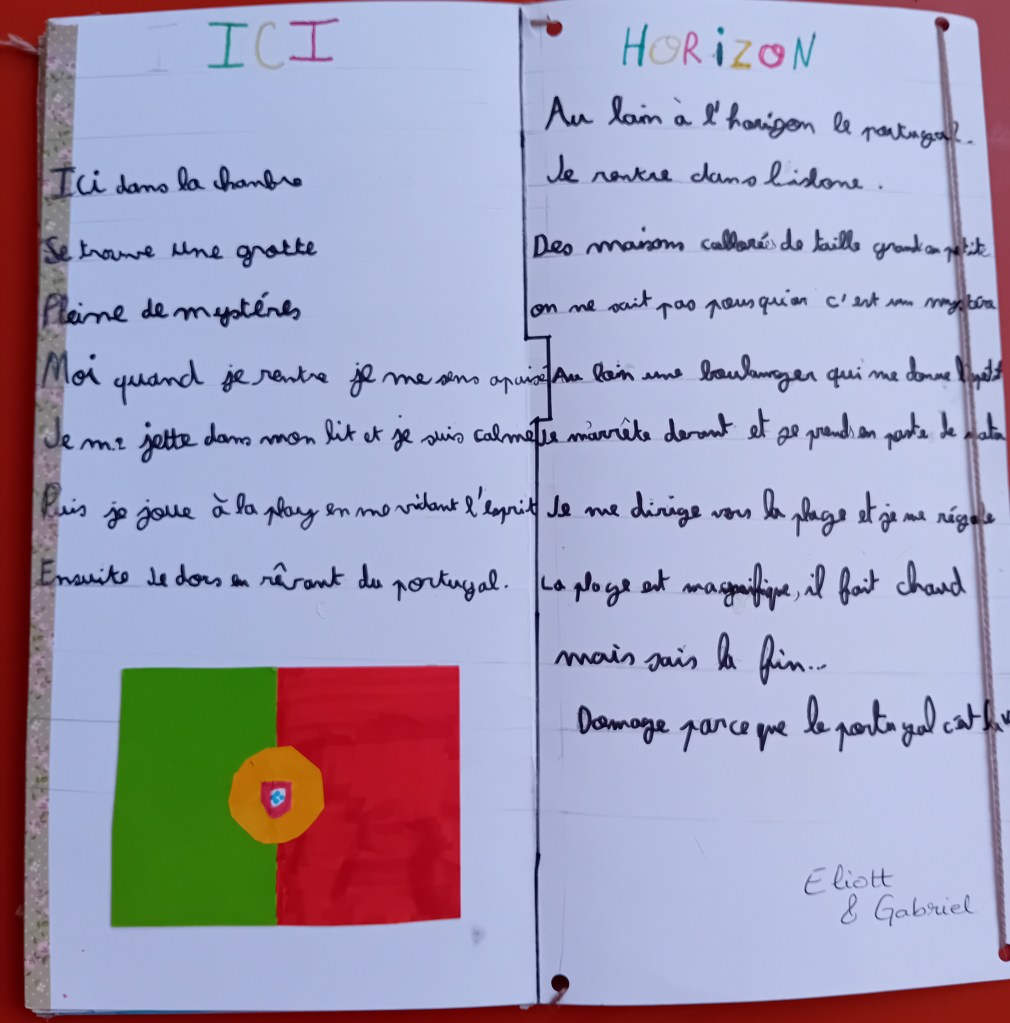 ICI
Ici dans la chambre
Se trouve une grotte
Pleine de mystéres
Moi quand je rentre je me sens apaisé
Je me jette dans mon lit et je suis calme
Puis je joue à la play en me vidant l'esprit
Ensuite Je dors en rêvant du portugal.
HORiZON
Au loin à l'horizon le portugal.
Je rentre dans lisbone.
Des maisons collorées de taille grand ou petite
on ne sait pas pourquoi c'est un mystère
Au loin une boulanger qui me donne
Je m'arrête devant et je prend un paste de nata
Je me dirige vers la plage et je me régale
La plage est magnifique, il fait chaud
mais sais la fin...
Domage parce que le portugal c'est
Eliott
& Gabriel